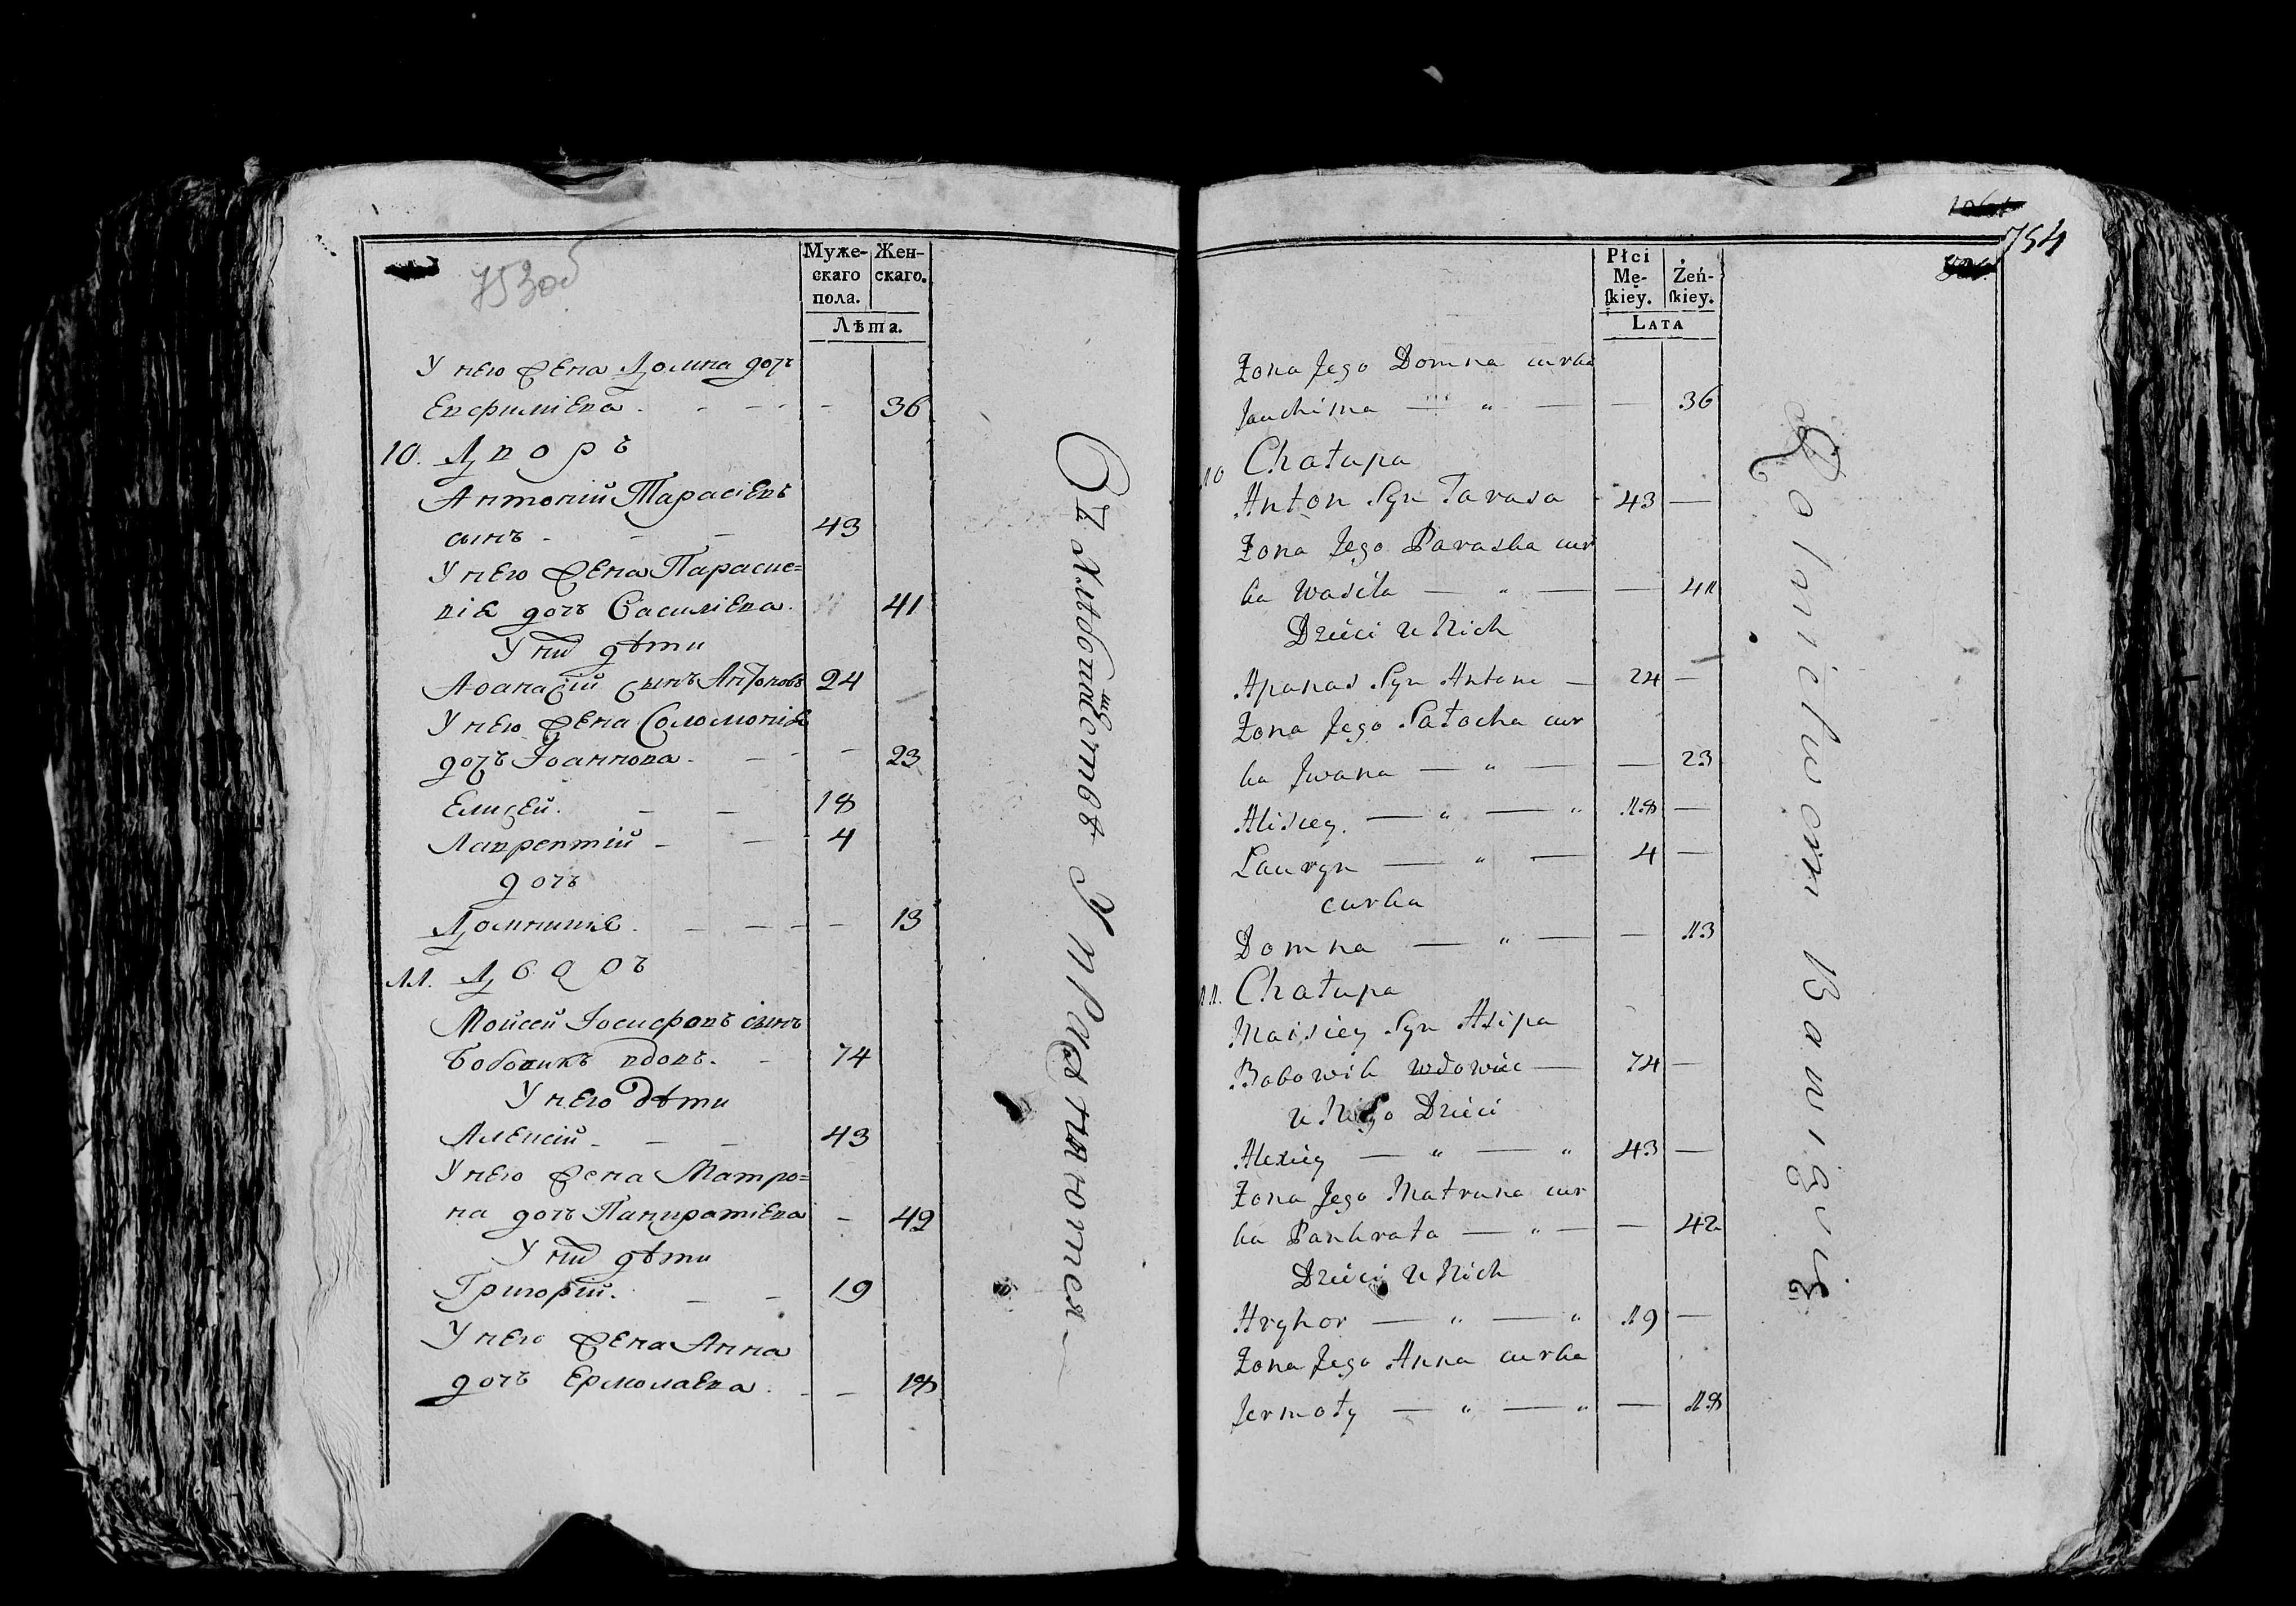 753об
Муже-
скаго
пола.
Жен-
скаго.
Лѣта.
У него жена Домна дочь
Евфиміева - 36
10. Дворъ
Антоній Тарасіевъ
сынъ - 43
У него жена Параске=
вія дочь Василіева - 41
У них дѣти
Аѳанасій сынъ Антоновъ 24
У него жена Соломонія
дочь Іоаннова - 23
Елисей - 18
Лаврентій - 4
дочь
Домникія - 13
11. Дворъ
Моисей Іосифовъ сынъ
Бобовикъ вдовъ - 74
У него дѣти
Алексій - 43
У него жена Матро=
на дочь Панкратіева - 42
У них дѣти
Григорій - 19
У него жена Анна
дочь Ермолаева - 18
Въ Хлѣбопашествѣ Упражняются
754
Płci
Mę-
skiey.
Żeń-
skiey.
LATA
Żona Jego Domna curka
Jauchima — " — — 36
10 Chałupa
Anton Syn Tarasa 43 —
Żona Jego Paraska cur
ka Wasila — " — — 41
Dzieci u Nich
Apanas Syn Antona — 24 —
Żona Jego Sałocha cur
ka Jwana — " — — 23
Alisiey — " — " 18 —
Lauryn — " — 4 —
curka
Domna — " — — 13
11. Chałupa
Maisiey Syn Asipa
Bobowik wdowiec — 74 —
u Niego Dzieci
Alexiey — " — " 43 —
Żona Jego Matruna cur
ka Pankrata — " — — 42
Dzieci u Nich
Hryhor — " — " 19 —
Żona Jego Anna curka
Jermoły — " — " — 18
Rolnictwem Bawią się